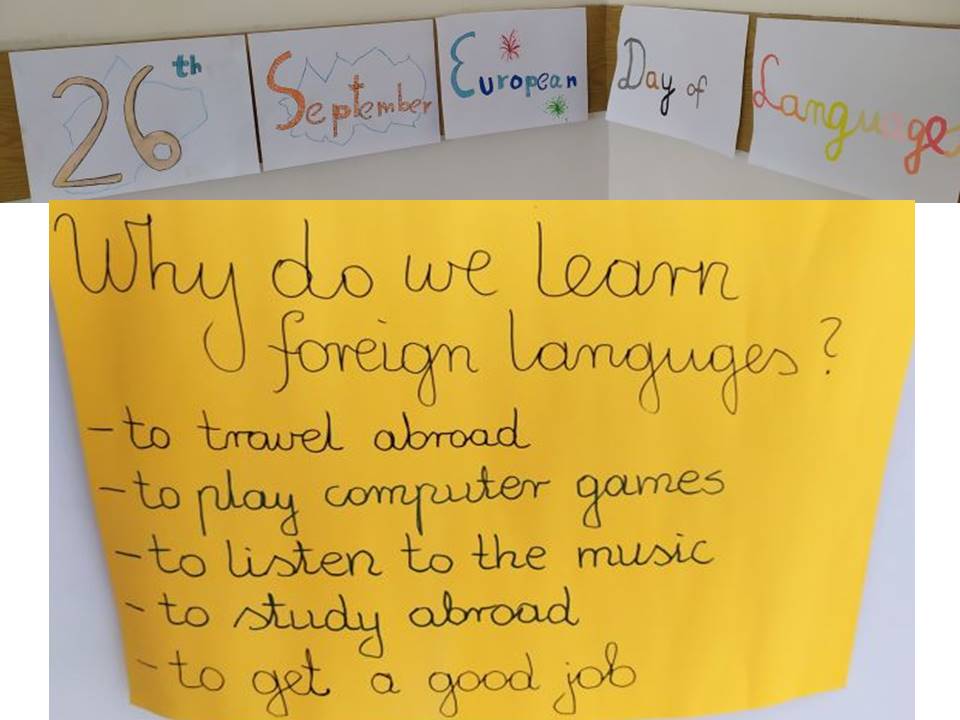 26th September European Day of Language
Why do we learn
foreign languges?
- to travel abroad
- to play computer games
- to listen to the music
- to study abroad
- to get a good job